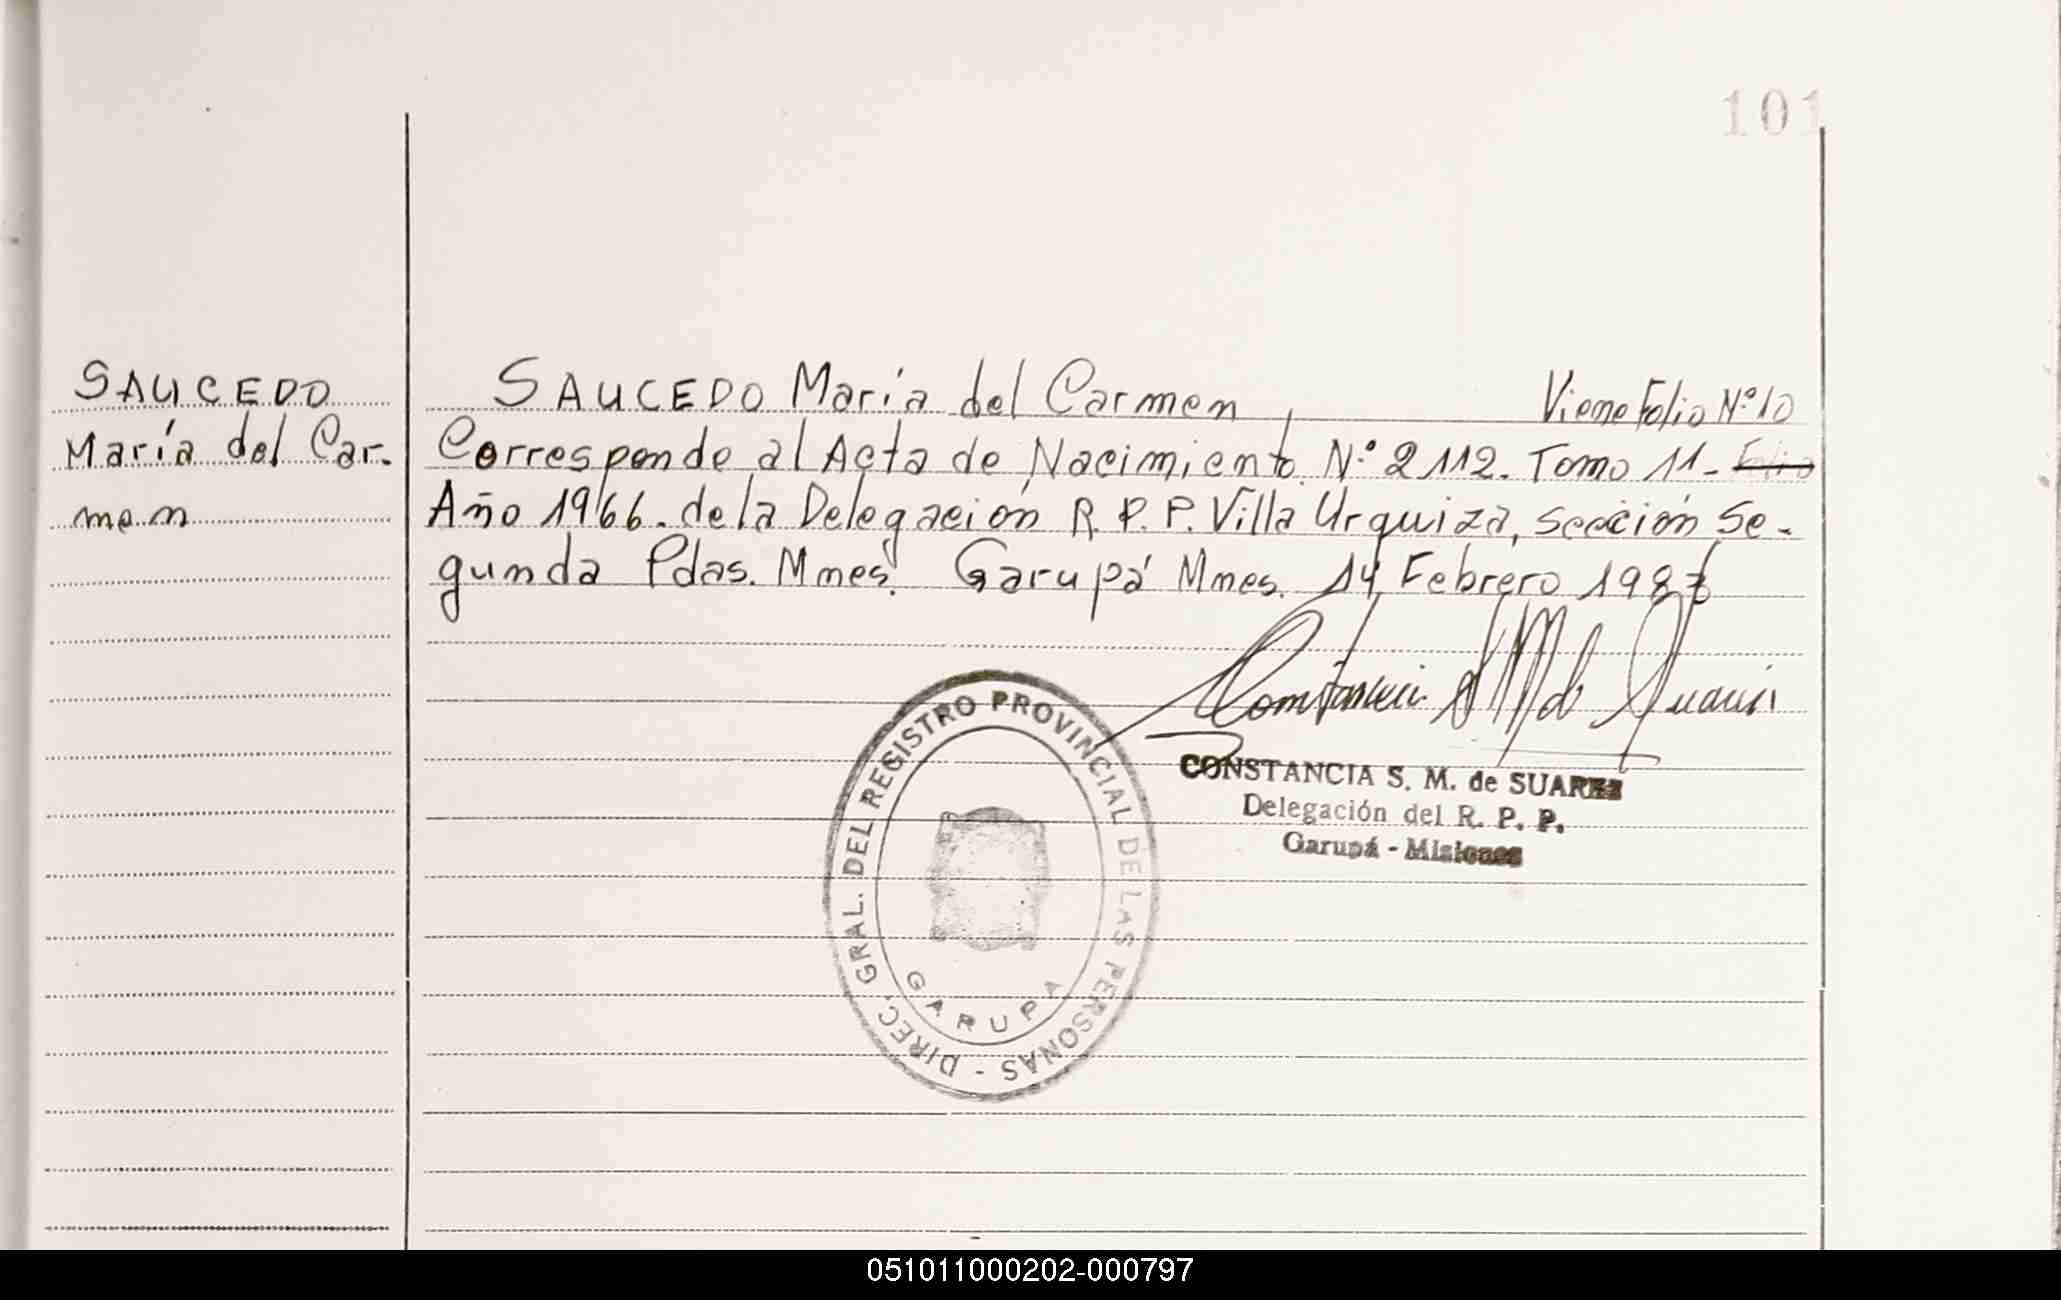 101
SAUCEDO
María del Car-
men
SAUCEDO María del Carmen Viene Folio Nº10
Corresponde al Acta de Nacimiento Nº 2112. Tomo 11- Folio
Año 1966. de la Delegación R.P.P. Villa Urquiza, sección Se-
gunda Pdas. Mnes. Garupá Mnes. 14 Febrero 198
Constancia S M de Suarez
CONSTANCIA S. M. de SUAREZ
Delegación del R. P. P.
Garupá - Misiones
DIREC. GRAL. DEL REGISTRO PROVINCIAL DE LAS PERSONAS -
GARUPA
051011000202-000797